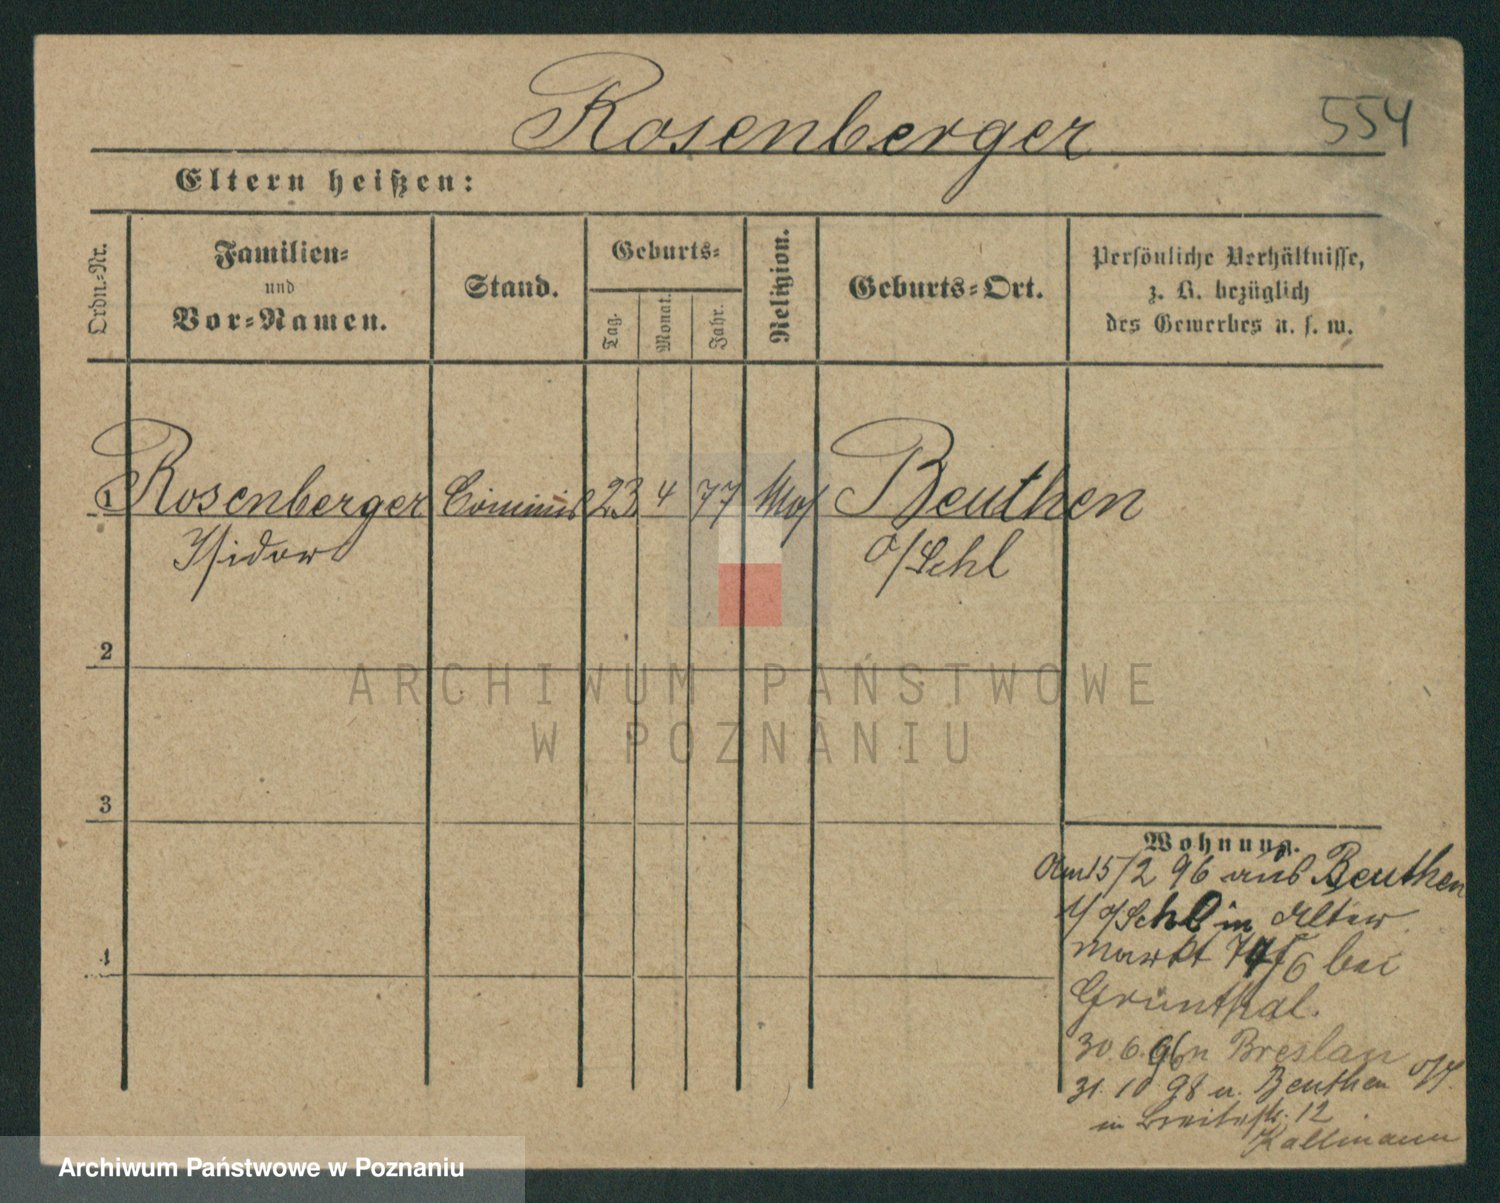 Rosenberger
554
Eltern heißen:
Ordn.-Nr.
Familien-
und
Vor-Namen.
Stand.
Geburts-
Tag.
Monat.
Jahr.
Religion.
Geburts-Ort.
Persönliche Verhältnisse,
z. B. bezüglich
des Gewerbes u. s. w.
1 Rosenberger Commis 23 4 77 Mos Beuthen
Isidor
O/Schl
2
3
4
Wohnung.
Am 15/2 96 aus Beuthen
O/Schl in Alter
markt bei
Grünthal.
30.6.96 n Breslau
31.10 98 v. Beuthen O/S.
in Breitestr. 12
Kallmann
ARCHIWUM PAŃSTWOWE
W POZNANIU
Archiwum Państwowe w Poznaniu